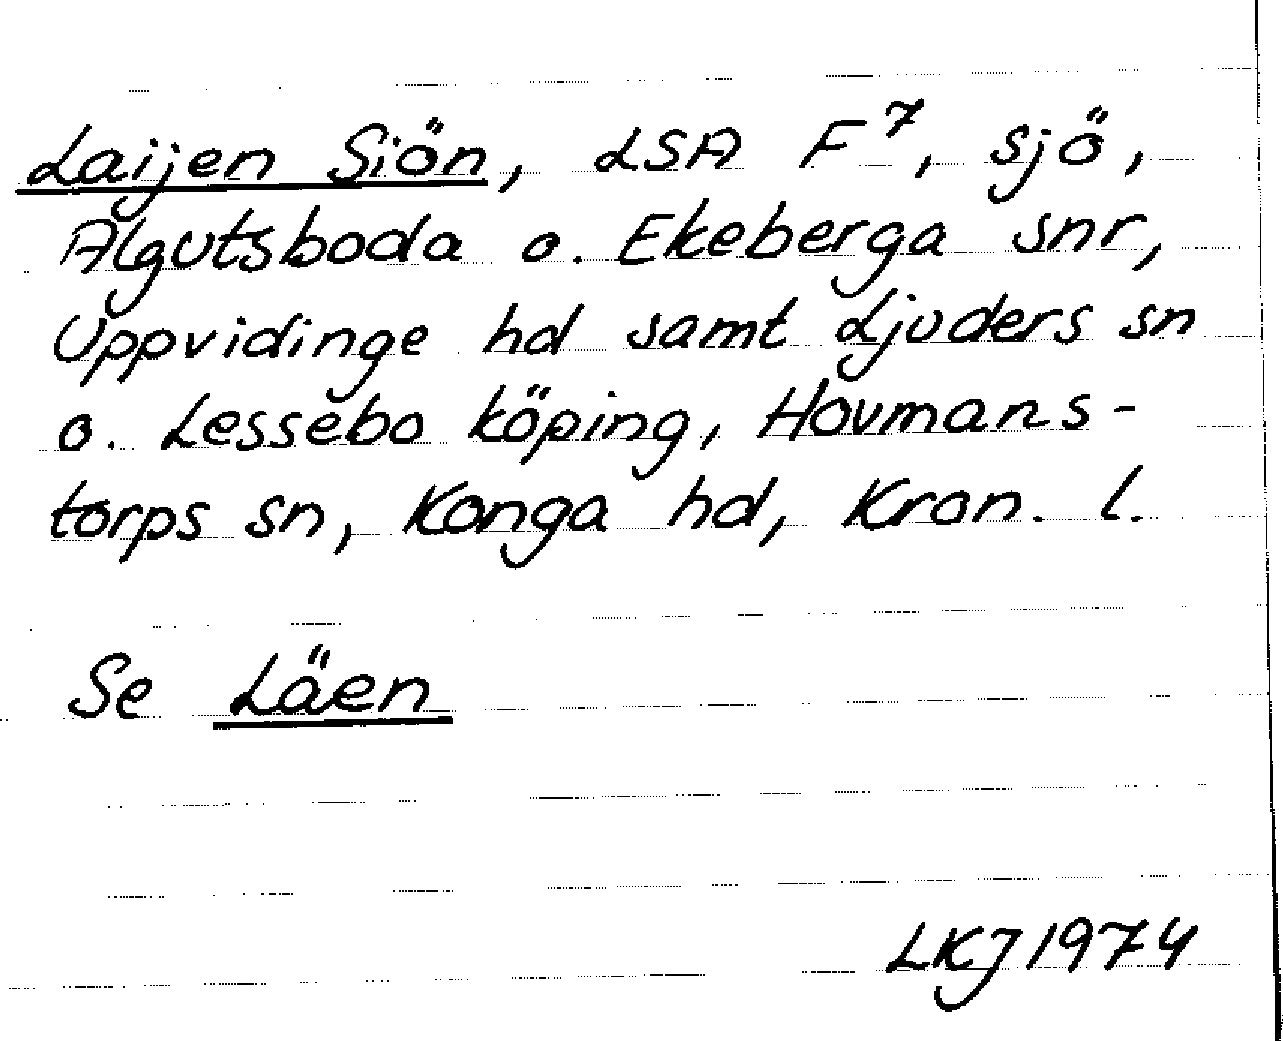 Laijen Siön, LSA F7, sjö,
Algutsboda o. Ekeberga snr,
Uppvidinge hd samt Ljuders sn
o. Lessebo köping, Hovmans-
torps sn, Konga hd, Kron. l.
Se Läen
LKJ 1974